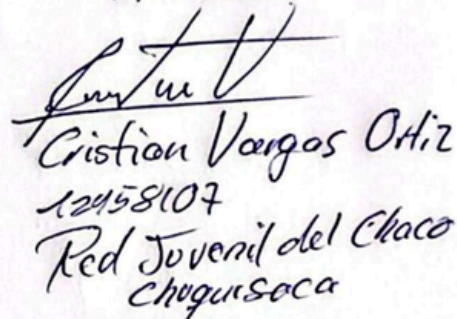 Cristian Vargas Ortiz
12458107
Red Juvenil del Chaco
Chuquisaca